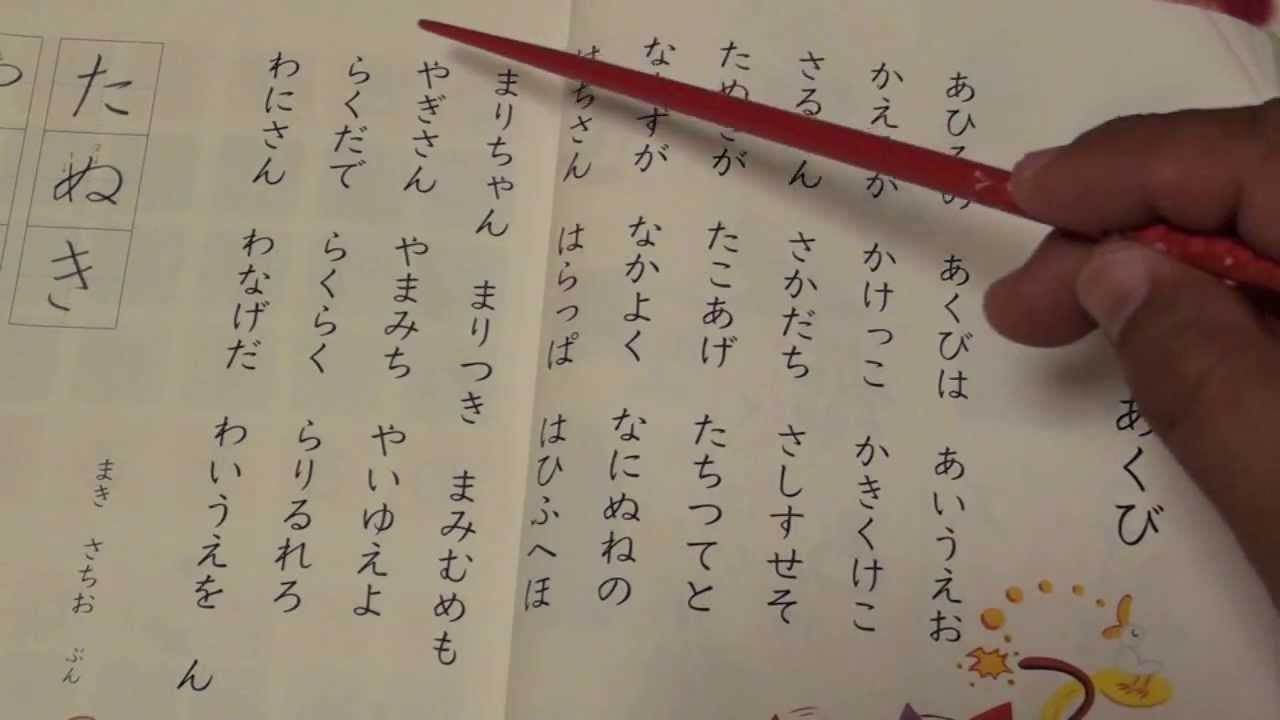 あくび
あひるの　あくびは　あいうえお
かえるが　かけっこ　かきくけこ
さるさん　さかだち　さしすせそ
たぬきが　たこあげ　たちつてと
なまずが　なかよく　なにぬねの
はちさん　はらっぱ　はひふへほ
まりちゃん　まりつき　まみむめも
やぎさん　やまみち　やいゆえよ
らくだで　らくらく　らりるれろ
わにさん　わなげだ　わいうえを
ん
まき　さちお　ぶん
たぬき